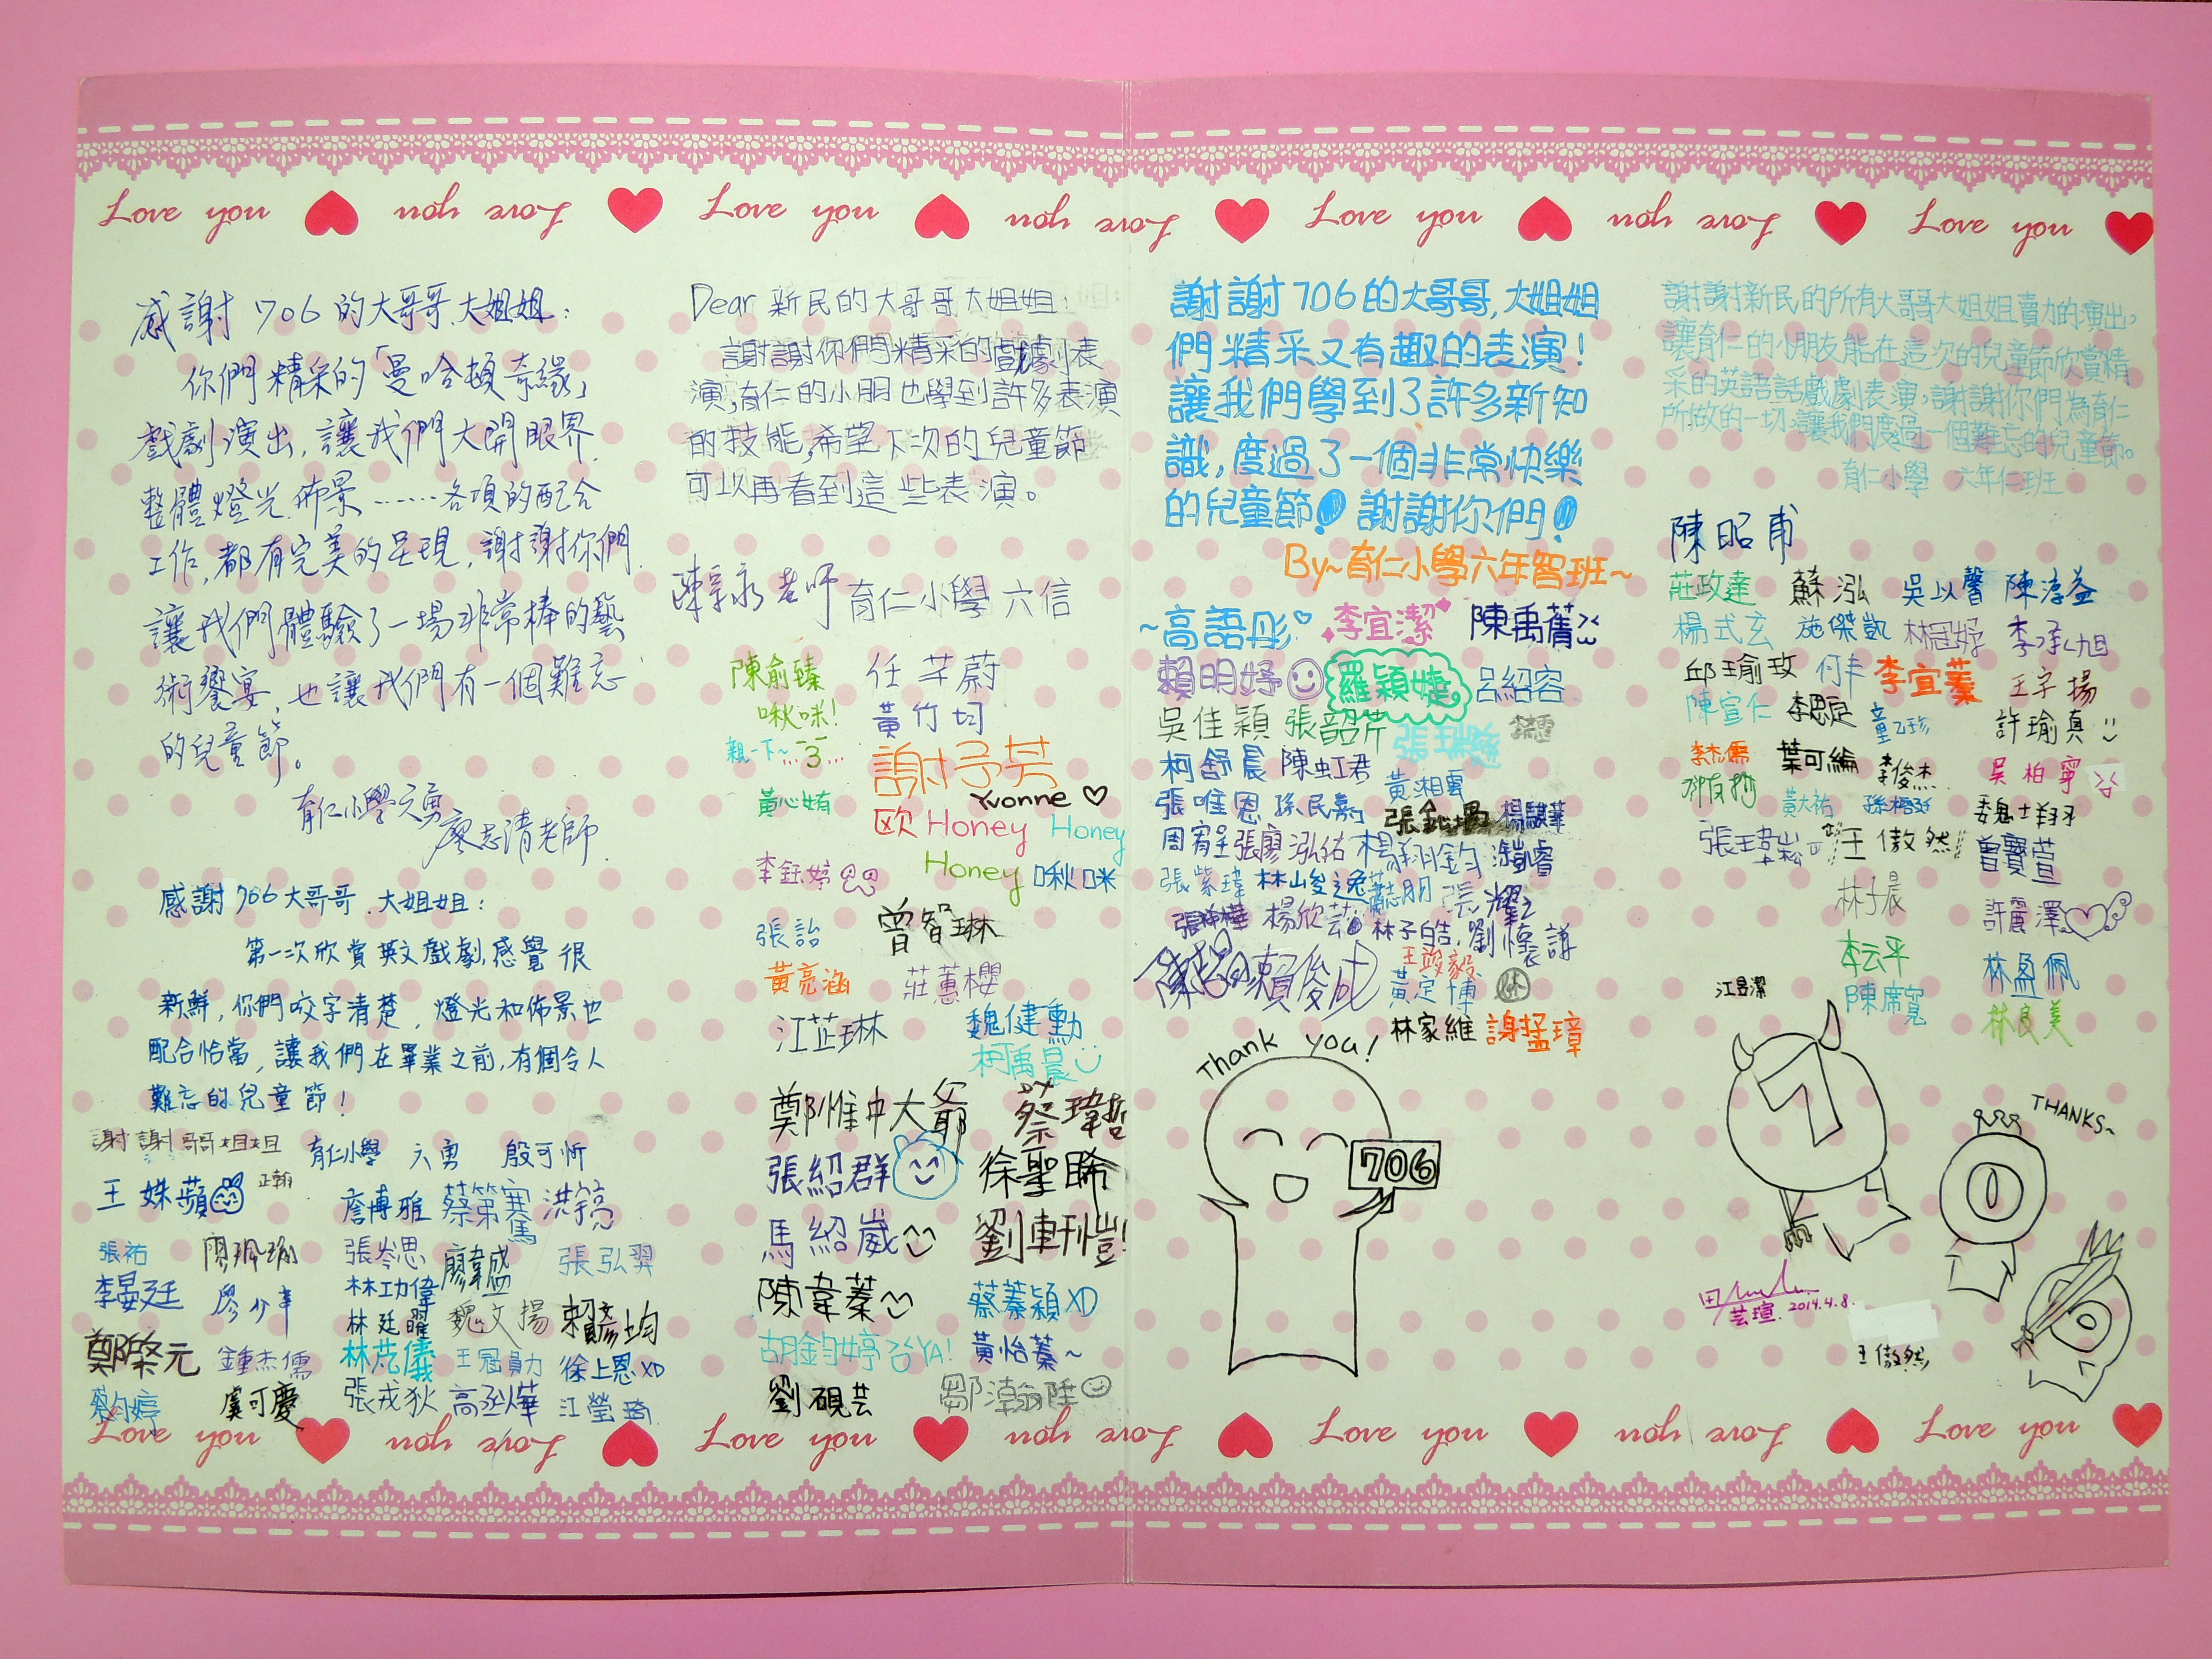 Love you Love you Love you Love you Love you Love you Love you
感謝 706 的大哥哥、大姐姐：
你們精采的「曼哈頓奇緣」
戲劇演出，讓我們大開眼界.
整體燈光.佈景……各項的配合
工作，都有完美的呈現，謝謝你們.
讓我們體驗了一場非常棒的藝
術饗宴，也讓我們有一個難忘
的兒童節。
育仁小學六勇
廖志清老師.
感謝 706 大哥哥、大姐姐：
第一次欣賞英文戲劇，感覺很
新鮮，你們咬字清楚，燈光和佈景也
配合恰當，讓我們在畢業之前，有個令人
難忘的兒童節！
謝謝哥哥姐姐
育仁小學 六勇 殷可忻
王姝蘋
詹博雅
張祐
張岑思
廖韋盛
張弘羿
李晏廷
林功偉
林廷曜
魏文揚
賴彥均
鍾杰儒
王冠員力
徐上恩XD
虞可慶
張戎狄
江瑩琦
Dear 新民的大哥哥大姐姐：
謝謝你們精采的戲劇表
演，育仁的小朋也學到許多表演
的技能，希望下次的兒童節
可以再看到這些表演。
老師 育仁小學 六信
陳俞臻 任芊蔚
啾咪! 黃竹均
親一下~...3...
謝予芳
Yvonne ♡
黃心姷
欧 Honey Honey
李鈺婷 Honey 啾咪
張詒 曾智琳
黃亮涵 莊蕙櫻
江芷琳 魏健勳
柯禹晨
鄭惟中大爺 蔡瑋哲
張紹群 徐聖晞
馬紹崴
陳韋蓁 蔡蓁穎XD
胡鈞婷 YA! 黃怡蓁~
劉硯芸
謝謝706的大哥哥，大姐姐
們精采又有趣的表演！
讓我們學到了許多新知
識，度過了一個非常快樂
的兒童節！謝謝你們！
By~育仁小學六年智班~
~高語彤 李宜潔 陳禹蒨
賴明妤 羅穎婕 呂紹容
吳佳穎 張韶芹
柯舒晨 陳虹君
黃湘雲
張唯恩
周宥呈 張廖泓祐 楊翔鈞
張紫瑋 林峻逸
楊欣芸 林子皓 劉懷謙
賴俊成 王竣毅
黃定博
林家維 謝孟璋
Thank you!
706
謝謝新民的所有大哥哥大姐姐賣力的演出，
讓育仁的小朋友能在這次的兒童節欣賞精
采的英語話戲劇表演，謝謝你們為育仁
所做的一切，讓我們度過一個難忘的兒童節。
育仁小學 六年仁班
陳昭甫
莊政達 蘇泓 吳以馨 陳淳益
楊式玄 施傑凱 李承旭
邱瑜玫 何丰 李宜蓁 王字揚
陳宣仁 李思定 童乙珍 許瑜真
李杰儒 葉可綸 李俊杰 吳柏寧
黃大祐 魏士翔
王傲然 曾寶萱
林子晨 許麗澤
李云平 林盈佩
陳席寬 林良美
江昱潔
7
THANKS~
0
6
芸瑄. 2014.4.8.
王傲然
Love you Love you Love you Love you Love you Love you Love you